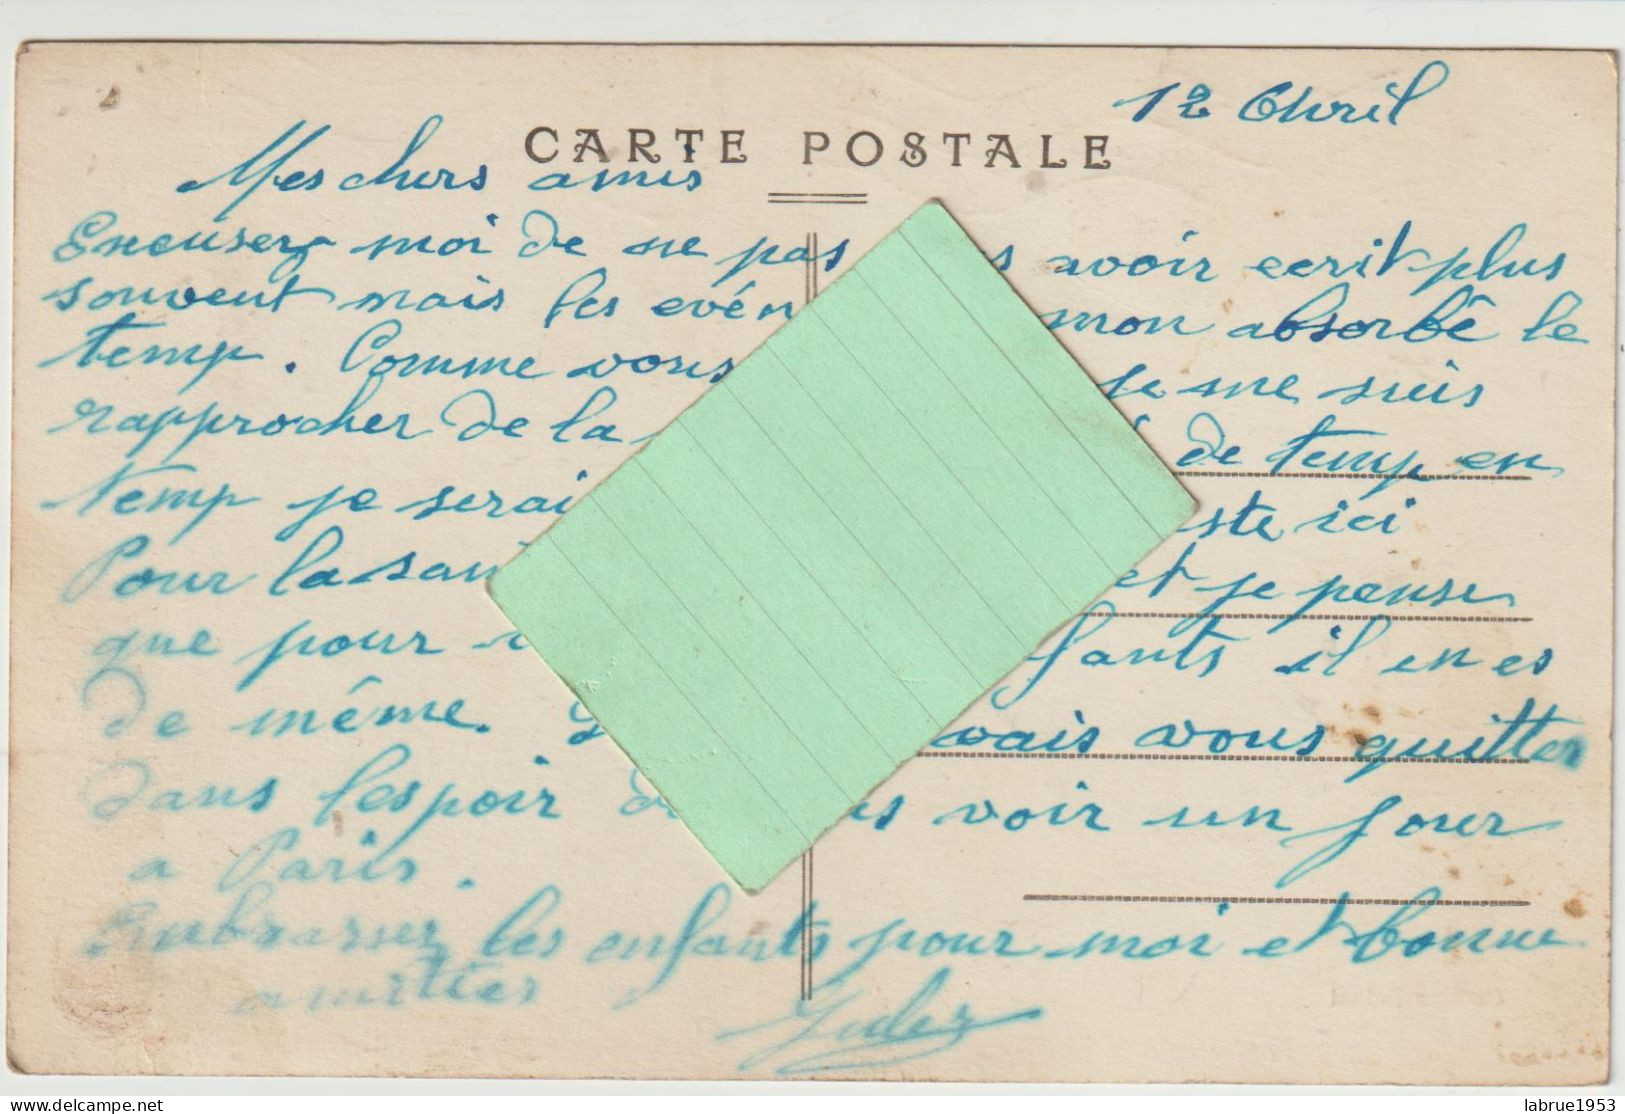 12 Avril
CARTE POSTALE
Mes chers amis
Excusez moi de ne pas s avoir ecrit plus
souvent mais les evén mon absorbê le
temp. Comme vous je me suis
rapprocher de la de temp en
temp je serai ste ici
Pour la san et je pense
que pour fants il en es
de même. vais vous quitter
dans l'espoir de us voir un jour
a Paris.
Embrasser les enfants pour moi et bonne
amitier
Jules
delcampe.net
labrue1953